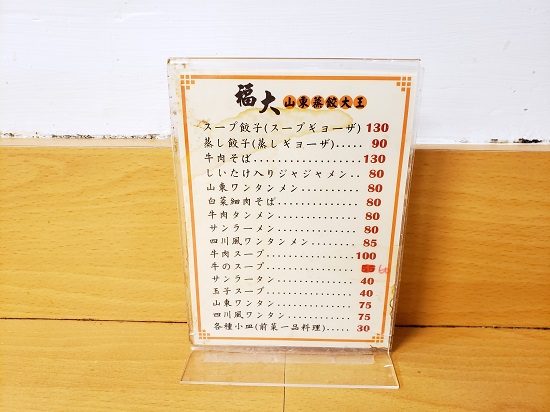 福大 山東蒸餃大王
スープ餃子(スープギョーザ) 130
蒸し餃子(蒸しギョーザ)..... 90
牛肉そば.................. 130
しいたけ入りジャジャメン.. 80
山東ワンタンメン.......... 80
白菜細肉そば.............. 80
牛肉タンメン.............. 80
サンラーメン.............. 80
四川風ワンタンメン........ 85
牛肉スープ................ 100
牛のスープ................ 55 60
サンラータン.............. 40
玉子スープ................ 40
山東ワンタン.............. 75
四川風ワンタン............ 75
各種小皿(前菜一品料理).... 30